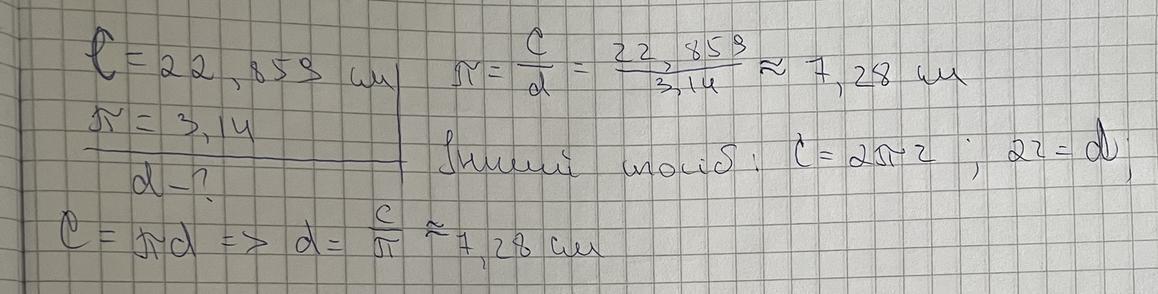 C = 22,859 см
π = 3,14
d - ?
π = C/d = 22,859/3,14 ≈ 7,28 см
Інший спосіб: C = 2πr ; 2r = d;
C = πd => d = C/π ≈ 7,28 см